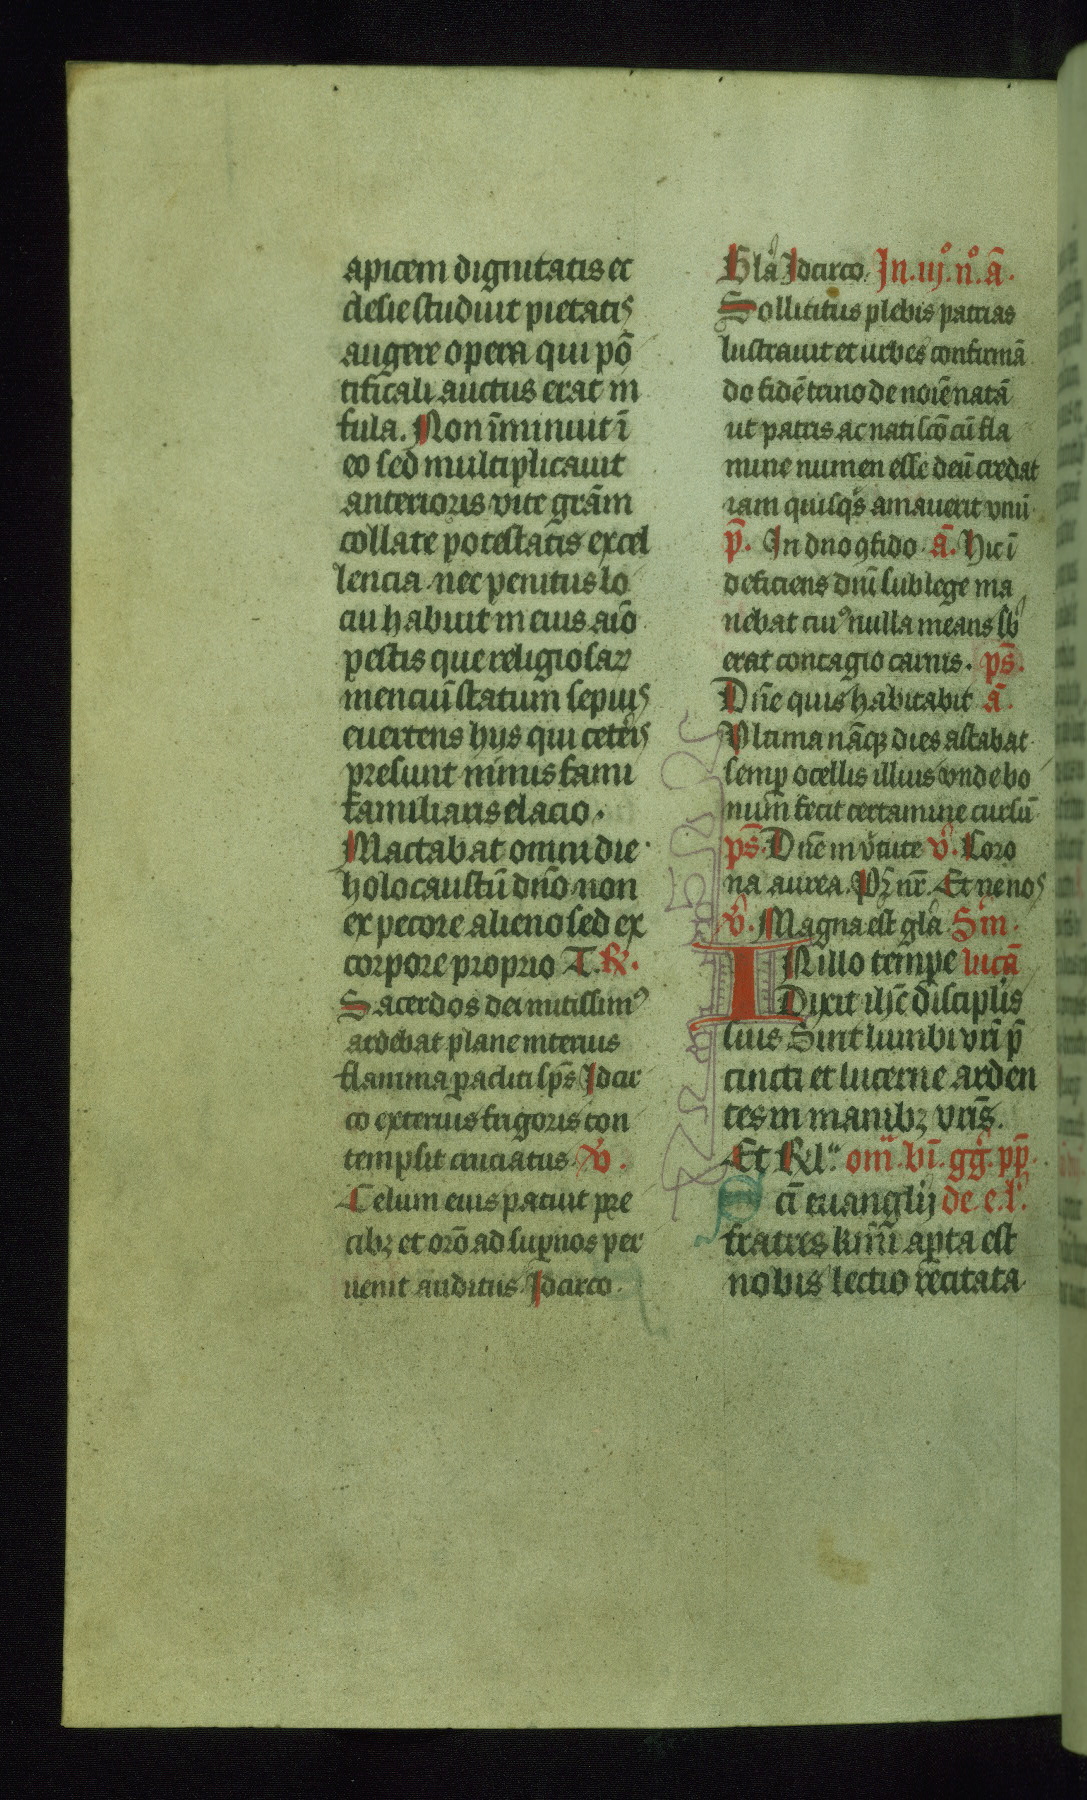 apicem dignitatis ec
clesie studuit pietatis
augere opera qui pō
tificali auctus erat in
fula. Non īminuit ī
eo sed multiplicauit
anterioris vite grām
collate potestatis excel
lencia nec penitus lo
cū habuit in eius aīo
pestis que religiosaꝝ
mencīu statum sepius
euertens hijs qui ceteris
presunt nimis fami
familiaris elacio.
Mactabat omni die
holocaustū dn̄o non
ex pecore alieno sed ex
corpore proprio T. R.
Sacerdos dei mitissimꝰ
ardebat plane interius
flamma paracliti sp̄s Idcir
co exterius frigoris con
tempsit cruciatus. V.
Celum eius patuit pre
cibꝫ et orō ad supnos per
uenit auditus Idcirco.
Glā Idcirco. In .iijº. nº. ā.
Sollicitus plebis patrias
lustrauit et urbes confirmā
do fidē trino de noīe natā
ut patris ac nati scō cū fla
mine numen esse deū credat
iam quisqs amauerit vnū
p̄. In dno ꝯfido ā. Hic ī
deficiens dn̄i sub lege ma
nebat cuiꝰ nulla means sb
erat contagio carnis. ps̄.
Dn̄e quis habitabit ā.
Vltima nāqꝫ dies astabat
semp ocellis illius vnde bo
num fecit certamine cursū
ps̄. Dn̄e in v̄tute v̄. Coro
na aurea. Pꝫ nr̄. Et ne nos
v̄. Magna est glā Sm.
IN illo tempe lucā
Dixit ihc̄ discipulis
suis Sint lumbi vr̄i p̄
cincti et lucerne arden
tes in manibꝫ vr̄is.
Et Rl. om̄. bī. gg. pp.
Scī euanglij de. e. l.
fratres kmī apta est
nobis lectio recitata